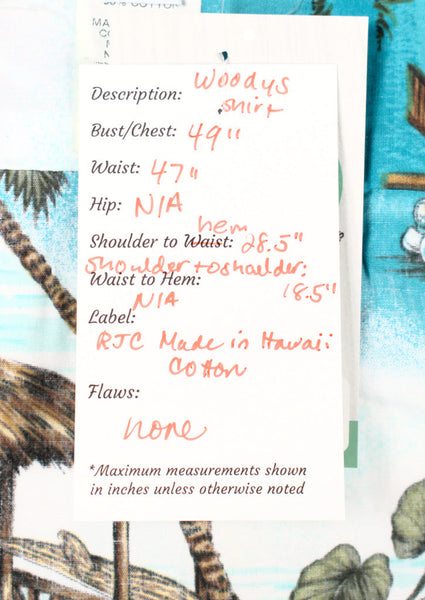 MA
CO
Description: Woodys
shirt
Bust/Chest: 49"
Waist: 47"
Hip: N/A
hem
Shoulder to Waist: 28.5"
shoulder to shoulder:
18.5"
Waist to Hem:
N/A
Label:
RJC Made in Hawaii
Cotton
Flaws:
none
*Maximum measurements shown
in inches unless otherwise noted